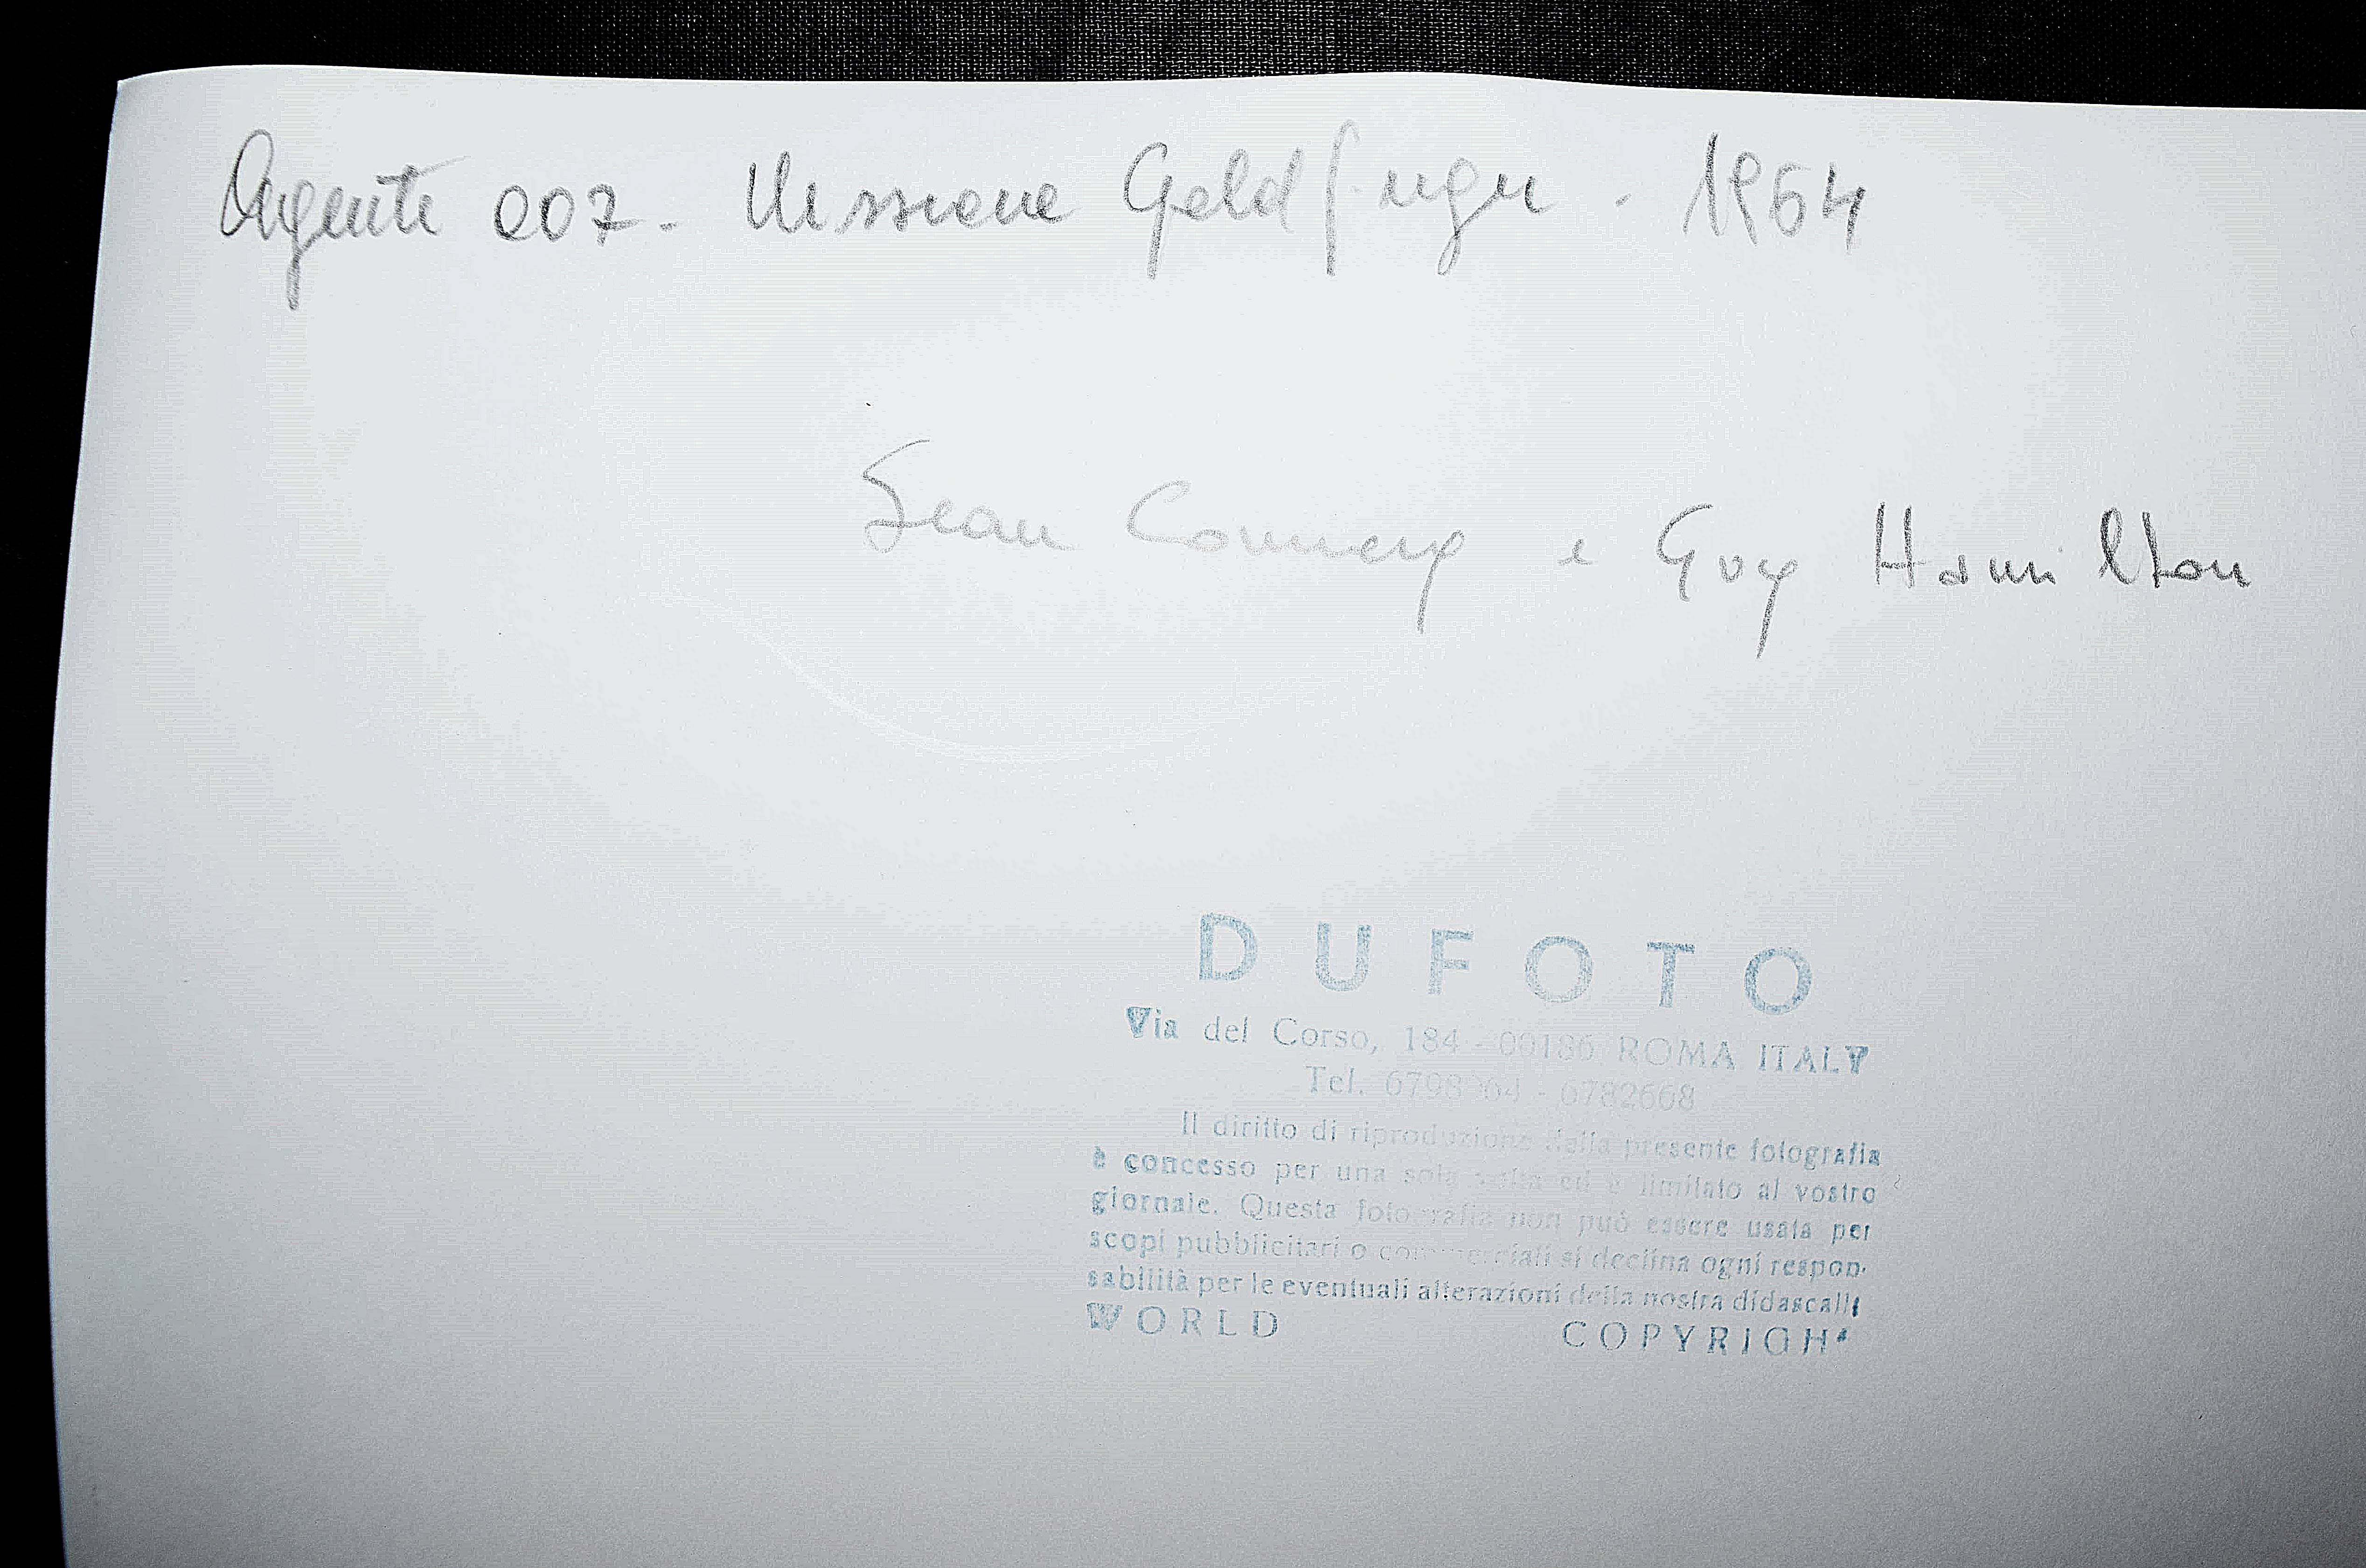 Agente 007 - Missione Goldfinger - 1964
Sean Connery e Guy Hamilton
DUFOTO
Via del Corso, 184 - 00186 ROMA ITALY
Tel. - 6782668
Il diritto di riproduzione della presente fotografia
è concesso per una sola volta ed è limitato al vostro
giornale. Questa fotografia non può essere usata per
scopi pubblicitari o commerciali si declina ogni respon-
sabilità per le eventuali alterazioni della nostra didascalia
WORLD COPYRIGHT